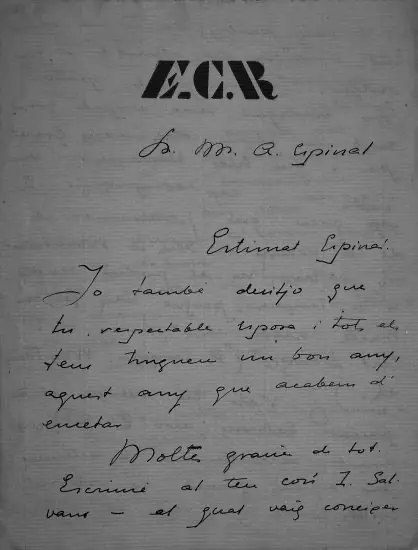 E.C.R.
Sr. M. A. Espinal
Estimat Espinal:
Jo també desitjo que
tu, respectable esposa i tots els
teus tingueu un bon any,
aquest any que acabem d'
encetar.
Moltes gracies de tot.
Escrimé al teu cosí J. Sal-
vans — al qual vaig coneixer